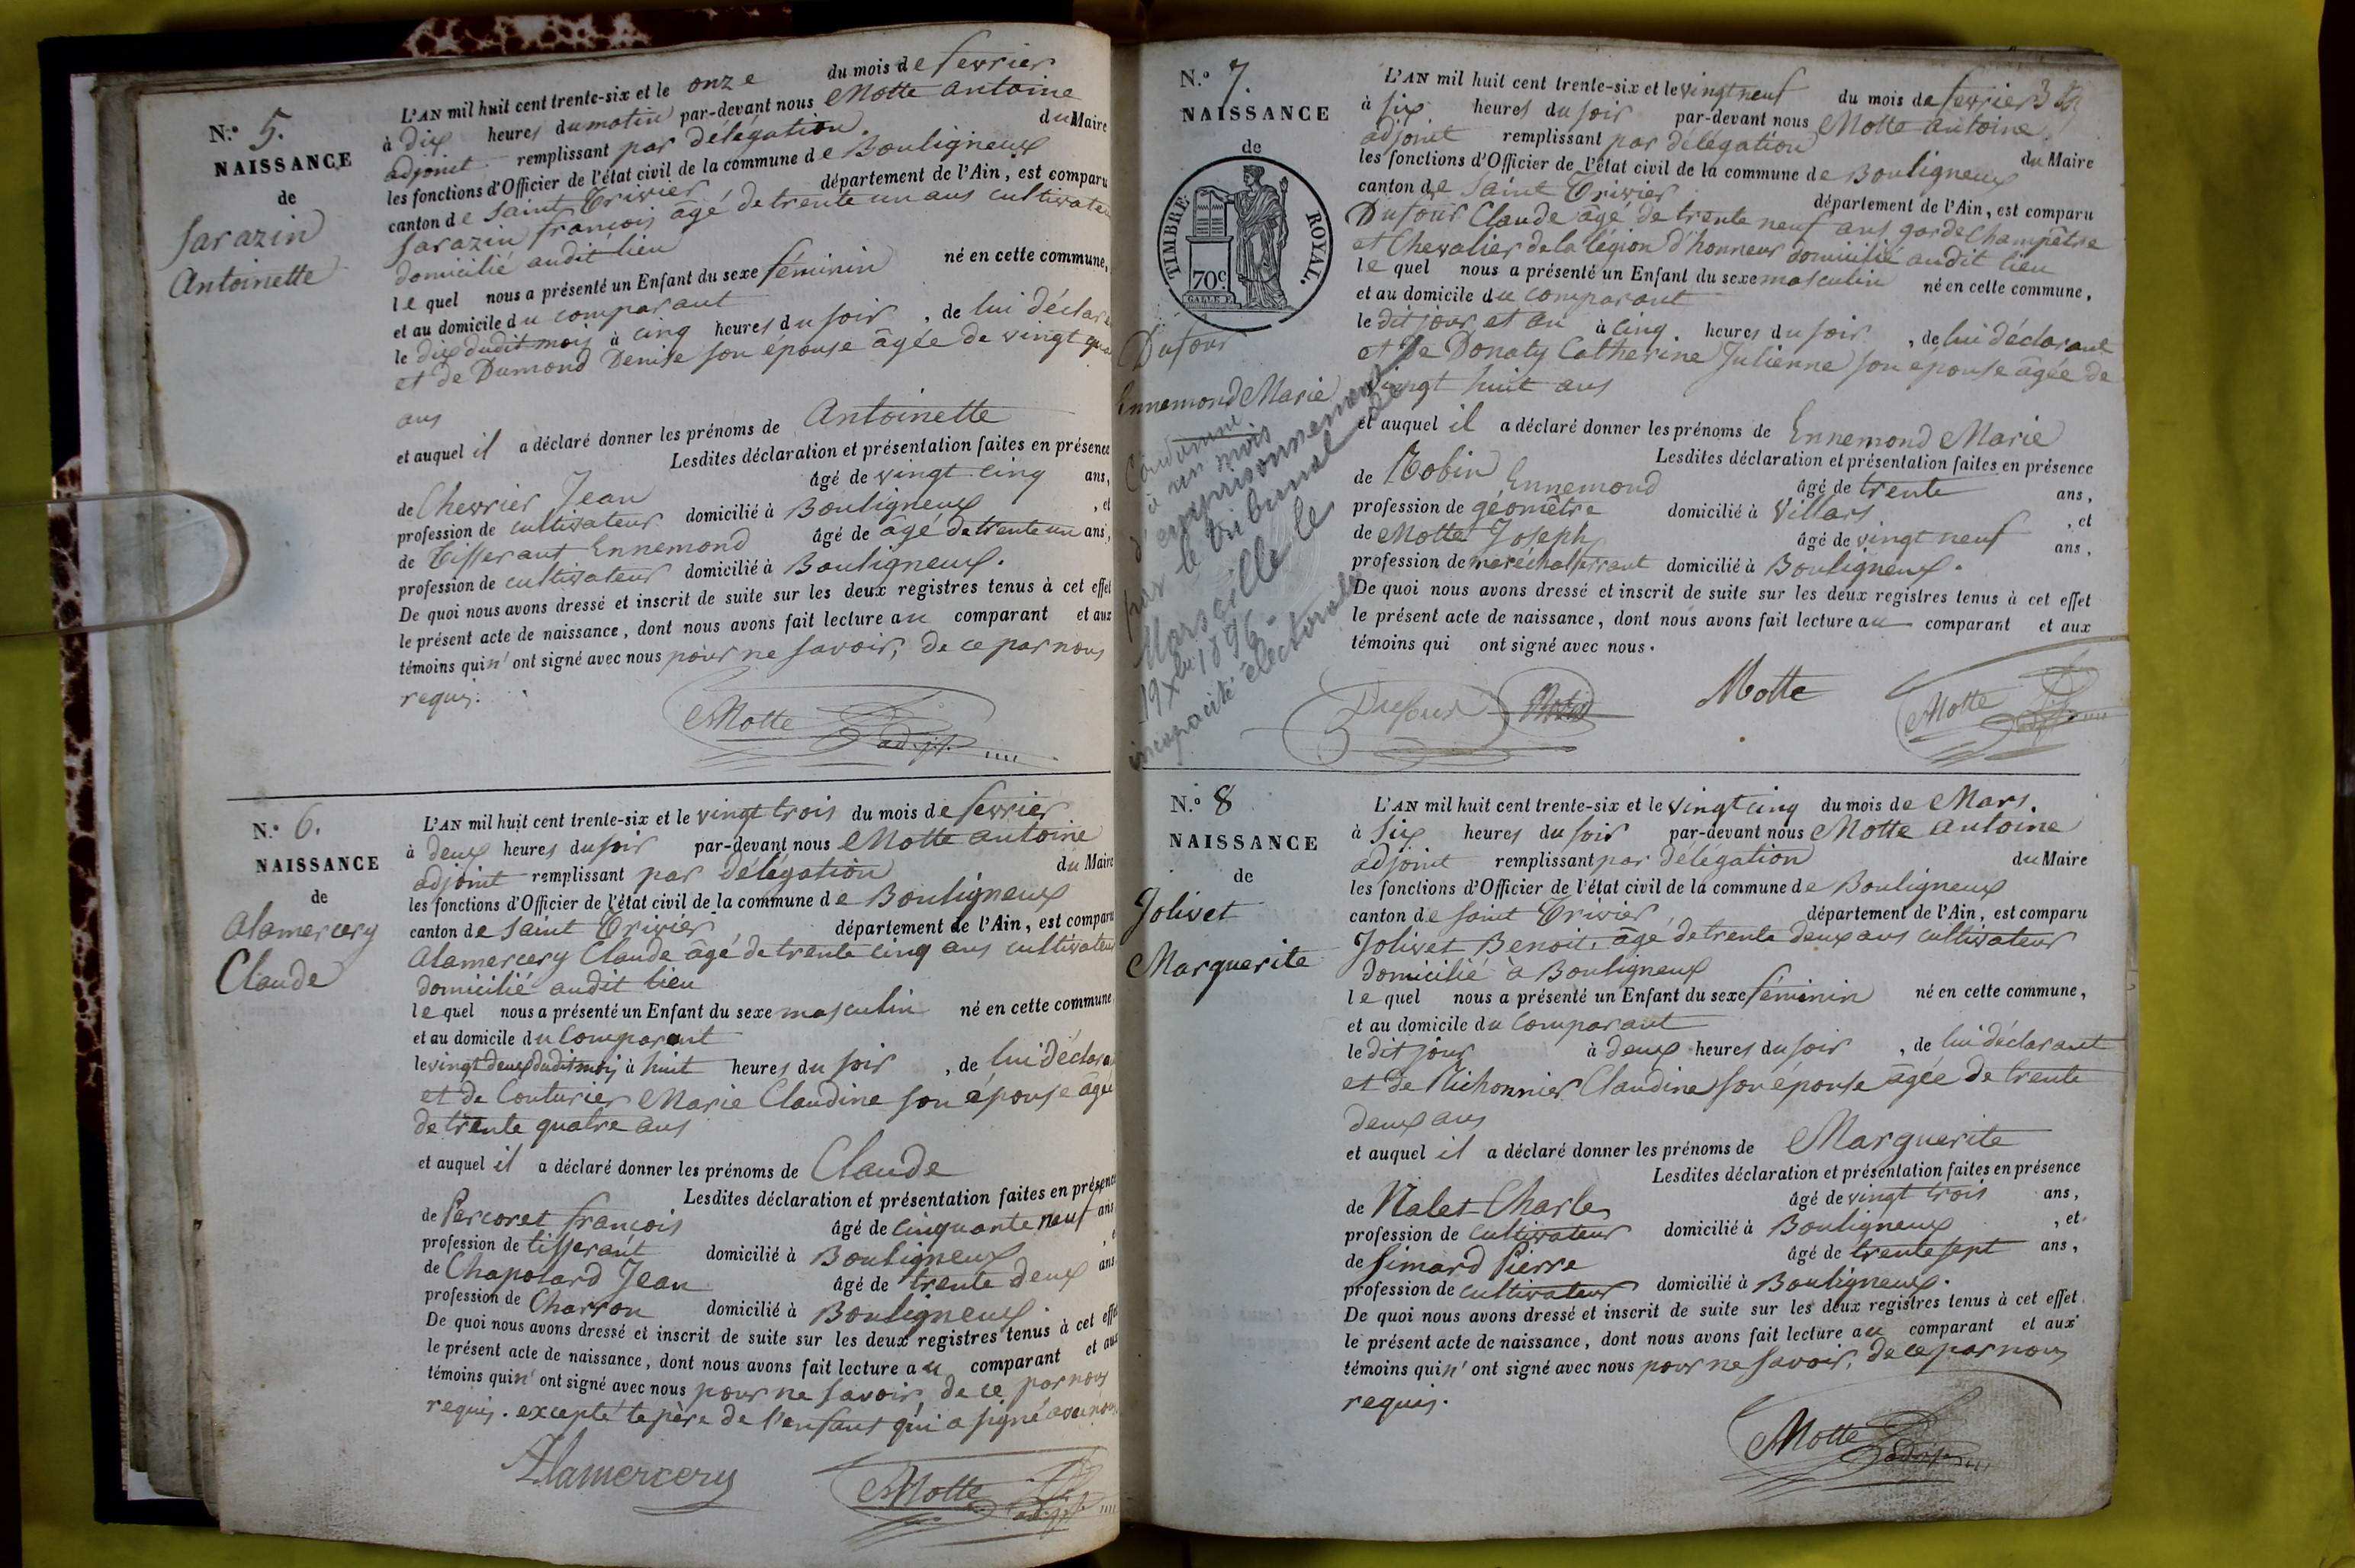 N.º 5.
NAISSANCE
de
Sarazin
Antoinette
L'AN mil huit cent trente-six et le onze du mois de fevrier
à dix heures du matin par-devant nous Motte antoine
adjoint remplissant par délégation du Maire
les fonctions d'Officier de l'état civil de la commune de Bouligneux
canton de Saint Trivier département de l'Ain, est comparu
Sarazin françois âgé de trente un ans cultivateur
domicilié audit lieu
lequel nous a présenté un Enfant du sexe féminin né en cette commune,
et au domicile du comparant
le dix dudit mois à cinq heures du soir, de lui déclara
et de Dumond Denise son épouse âgée de vingt qua
ans
et auquel il a déclaré donner les prénoms de Antoinette
Lesdites déclaration et présentation faites en présence
de Chevrier Jean âgé de vingt cinq ans,
profession de cultivateur domicilié à Bouligneux, et
de Tisserant Ennemond âgé de âgé de trente un ans,
profession de cultivateur domicilié à Bouligneux.
De quoi nous avons dressé et inscrit de suite sur les deux registres tenus à cet effet
le présent acte de naissance, dont nous avons fait lecture au comparant et aux
témoins qui n' ont signé avec nous pour ne savoir, de ce par nous
requis.
Motte adjt.
N.º 6.
NAISSANCE
de
Alamercery
Claude
L'AN mil huit cent trente-six et le vingt trois du mois de fevrier
à deux heures du soir par-devant nous Motte antoine
adjoint remplissant par délégation du Maire
les fonctions d'Officier de l'état civil de la commune de Bouligneux
canton de Saint Trivier département de l'Ain, est comparu
Alamercery Claude âgé de trente cinq ans cultivateur
domicilié audit lieu
lequel nous a présenté un Enfant du sexe masculin né en cette commune
et au domicile du Comparant
le vingt deux dudit mois à huit heures du soir, de lui déclara
et de Couturier Marie Claudine son épouse âgée
de trente quatre ans
et auquel il a déclaré donner les prénoms de Claude
Lesdites déclaration et présentation faites en présence
de Percoret françois âgé de cinquante neuf ans
profession de tisserant domicilié à Bouligneux, e
de Chapolard Jean âgé de trente deux ans
profession de Charron domicilié à Bouligneux.
De quoi nous avons dressé et inscrit de suite sur les deux registres tenus à cet effe
le présent acte de naissance, dont nous avons fait lecture au comparant et aux
témoins qui n' ont signé avec nous pour ne savoir, de ce par nous
requis. excepté le père de l'enfant qui a signé avec nous
Alamercery Motte adjt.
N.º 7.
NAISSANCE
de
TIMBRE ROYAL.
70c
Dufour
Ennemond Marie
Condamné
à un mois
d'emprisonnement
par le tribunal de
Marseille le
19 xbre 1896 -
incapacité électorale
L'AN mil huit cent trente-six et le vingt neuf du mois de fevrier
à six heures du soir par-devant nous Motte antoine
adjoint remplissant par délégation du Maire
les fonctions d'Officier de l'état civil de la commune de Bouligneux
canton de Saint Trivier département de l'Ain, est comparu
Dufour Claude âgé de trente neuf ans garde Champêtre
et Chevalier de la légion d'honneur domicilié audit lieu
lequel nous a présenté un Enfant du sexe masculin né en cette commune,
et au domicile du comparant
le dit jour et an à cinq heures du soir, de lui déclarant
et de Donaty Catherine Julienne son épouse âgée de
vingt huit ans
et auquel il a déclaré donner les prénoms de Ennemond Marie
Lesdites déclaration et présentation faites en présence
de Robin Ennemond âgé de trente ans,
profession de géomètre domicilié à Villars, et
de Motte Joseph âgé de vingt neuf ans,
profession de maréchal ferrant domicilié à Bouligneux.
De quoi nous avons dressé et inscrit de suite sur les deux registres tenus à cet effet
le présent acte de naissance, dont nous avons fait lecture au comparant et aux
témoins qui ont signé avec nous.
Dufour Robin Motte Motte adjt.
N.º 8
NAISSANCE
de
Jolivet
Marguerite
L'AN mil huit cent trente-six et le vingt cinq du mois de Mars.
à Six heures du soir par-devant nous Motte antoine
adjoint remplissant par délégation du Maire
les fonctions d'Officier de l'état civil de la commune de Bouligneux
canton de Saint Trivier, département de l'Ain, est comparu
Jolivet Benoit, âgé de trente deux ans cultivateur
domicilié à Bouligneux
lequel nous a présenté un Enfant du sexe féminin né en cette commune,
et au domicile du Comparant
le dit jour à deux heures du soir, de lui déclarant
et de Michonnier Claudine son épouse âgée de trente
deux ans
et auquel il a déclaré donner les prénoms de Marguerite
Lesdites déclaration et présentation faites en présence
de Nalet Charles âgé de vingt trois ans,
profession de cultivateur domicilié à Bouligneux, et
de Simard Pierre âgé de trente sept ans,
profession de cultivateur domicilié à Bouligneux.
De quoi nous avons dressé et inscrit de suite sur les deux registres tenus à cet effet
le présent acte de naissance, dont nous avons fait lecture au comparant et aux
témoins qui n' ont signé avec nous pour ne savoir, de ce par nous
requis.
Motte adjt.